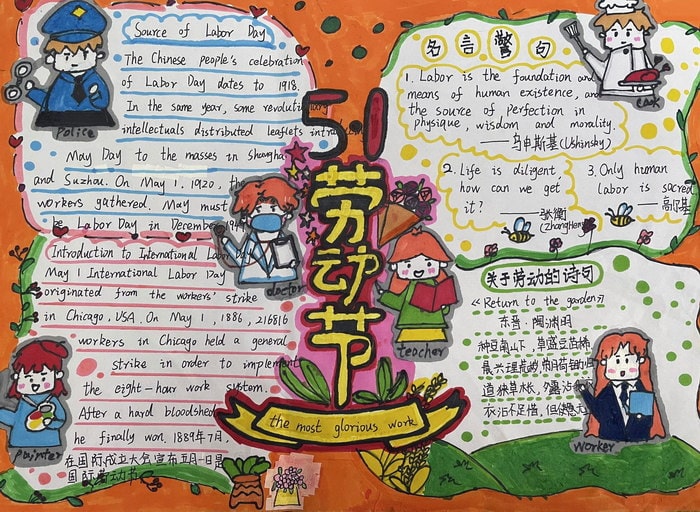 Source of Labor Day
The Chinese people's celebration
of Labor Day dates to 1918.
In the same year, some revolutionary
intellectuals distributed leaflets
May Day to the masses in Shangha
and Suzhou. On May 1, 1920, the
workers gathered. May must
be Labor Day in December
police
Introduction to International Labor Day
May 1 International Labor Day
originated from the workers' strike
in Chicago, USA. On May 1, 1886, 216816
workers in Chicago held a general
strike in order to implement
the eight-hour work system.
After a hard bloodshed
he finally won. 1889年7月,
在国际成立大会宣布五月一日是
国际劳动节
painter
doctor
51
劳动节
the most glorious work
teacher
名言警句
1. Labor is the foundation and
means of human existence, and
the source of perfection in
physique, wisdom and morality.
——乌申斯基(Ushinsky)
2. Life is diligent,
how can we get
it?
——张衡
(ZhangHen
3. Only human
labor is sacred
——高尔基
cook
关于劳动的诗句
《Return to the garden》
东晋·陶渊明
种豆南山下,草盛豆苗稀
晨兴理荒秽,带月荷锄归
道狭草木长,夕露沾我
衣沾不足惜,但使愿无
worker